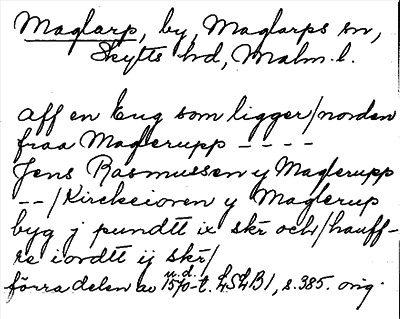 Maglarp, by, Maglarps sn,
Skytts hd, Malm. l.
aff en Eng som ligger/norden
fraa Maglerupp ----
Jens Rasmussen y Maglerupp
--/Kirckeioren y Maglerup
byg j pundtt ix skr och/hauff-
re iordtt ij skr/
förra delen av 1570-t. LSLB1, s. 385. orig.
u.d.